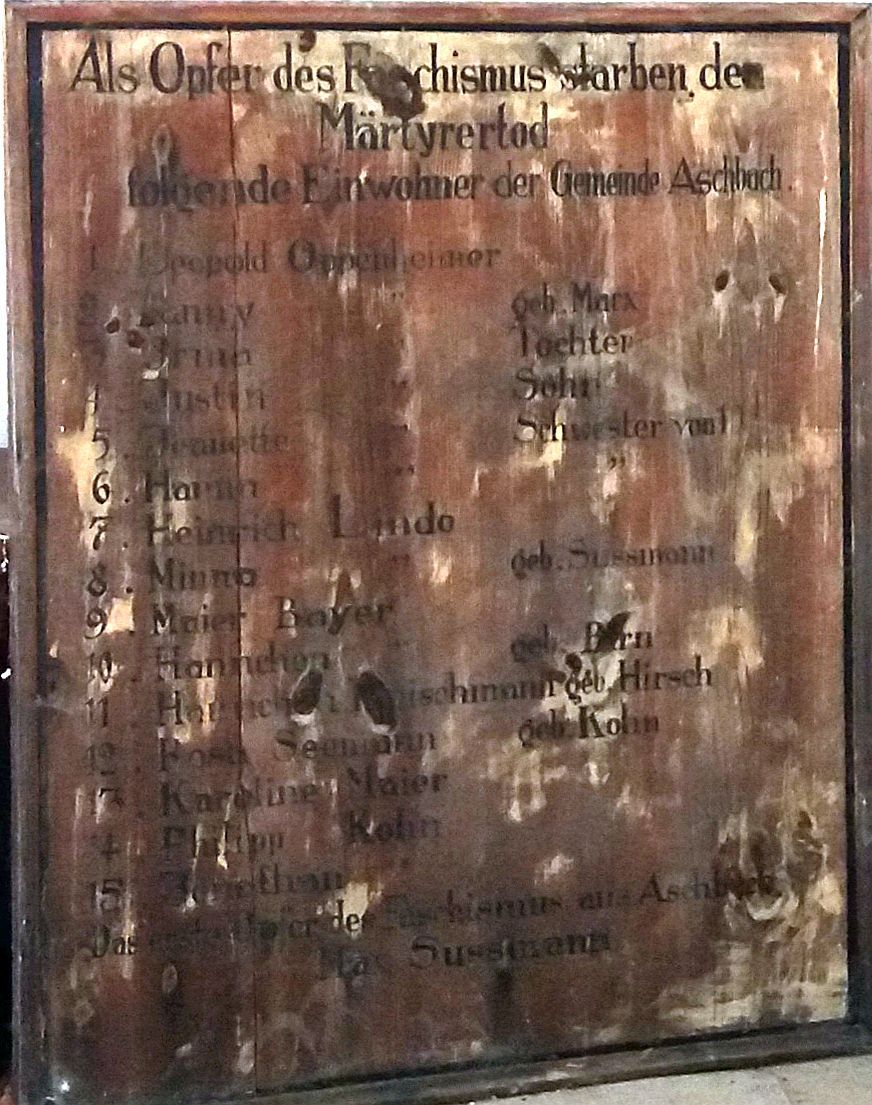 Als Opfer des Faschismus starben den
Märtyrertod
folgende Einwohner der Gemeinde Aschbach.
1. Leopold Oppenheimer
2. Fanny " geb. Marx
3. Irma Tochter
4. Justin " Sohn
5. Jeanette " Schwester von 1
6. " "
7. Heinrich Lindo
8. Minna " geb. Sussmann
9. Maier Bayer
10. Hannchen " geb.
11. geb. Hirsch
12. Rosa Seemann geb. Kohn
13. Karoline Maier
14. Philipp Kohn
15.
Das erste Opfer des Faschismus aus Aschbach
Max Sussmann